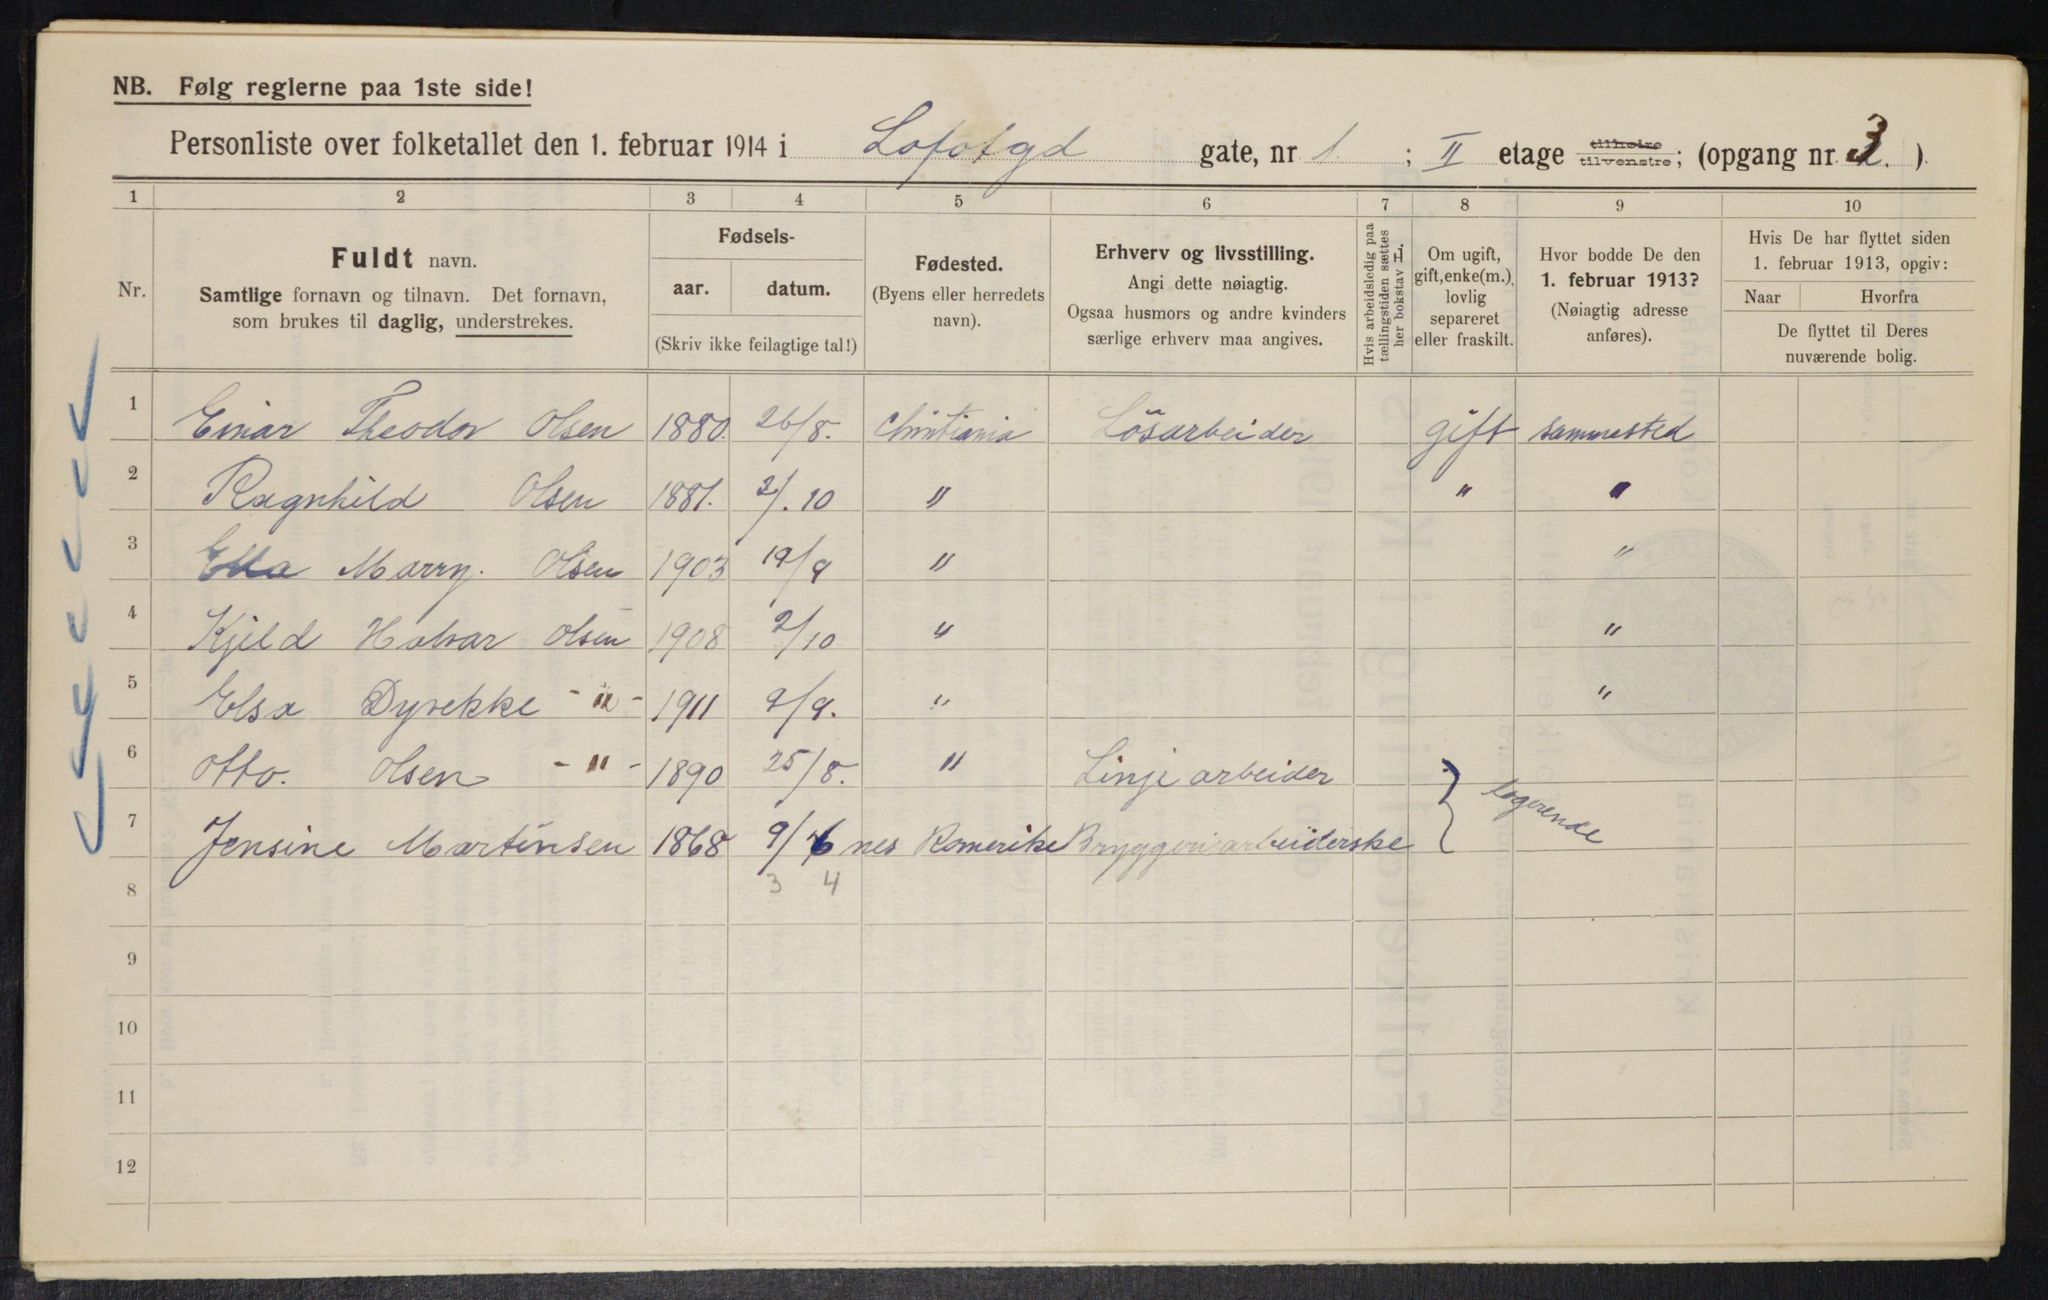 NB. Følg reglerne paa 1ste side!
Personliste over folketallet den 1. februar 1914 i Lofotgd gate, nr 1. ; II etage tilhøire tilvenstre; (opgang nr. 3. ).
1 2 3 4 5 6 7 8 9 10
Nr.
Fuldt navn.
Samtlige fornavn og tilnavn. Det fornavn,
som brukes til daglig, understrekes.
Fødsels-
aar. datum.
(Skriv ikke feilagtige tal!)
Fødested.
(Byens eller herredets
navn).
Erhverv og livsstilling.
Angi dette nøiagtig.
Ogsaa husmors og andre kvinders
særlige erhverv maa angives.
Hvis arbeidsledig paa
tællingstiden sættes
her bokstav L.
Om ugift,
gift, enke(m.),
lovlig
separeret
eller fraskilt.
Hvor bodde De den
1. februar 1913?
(Nøiagtig adresse
anføres).
Hvis De har flyttet siden
1. februar 1913, opgiv:
Naar Hvorfra
De flyttet til Deres
nuværende bolig.
1 Einar Theodor Olsen 1880. 26/8. Christiania Lösarbeider gift sammested
2 Ragnhild Olsen 1881. 2/. 10 " " "
3 Ella Marry. Olsen 1903 19/9 " "
4 Kjeld Halvar Olsen 1908 2/10 " "
5 Elsa Dyvekke - " - 1911 2/9. " "
6 Otto. Olsen - " - 1890 25/8. " Linjearbeider
logerende
7 Jensine Martinsen 1868 9/6 nes Romerike Bryggeriarbeiderske
3 4
8
9
10
11
12